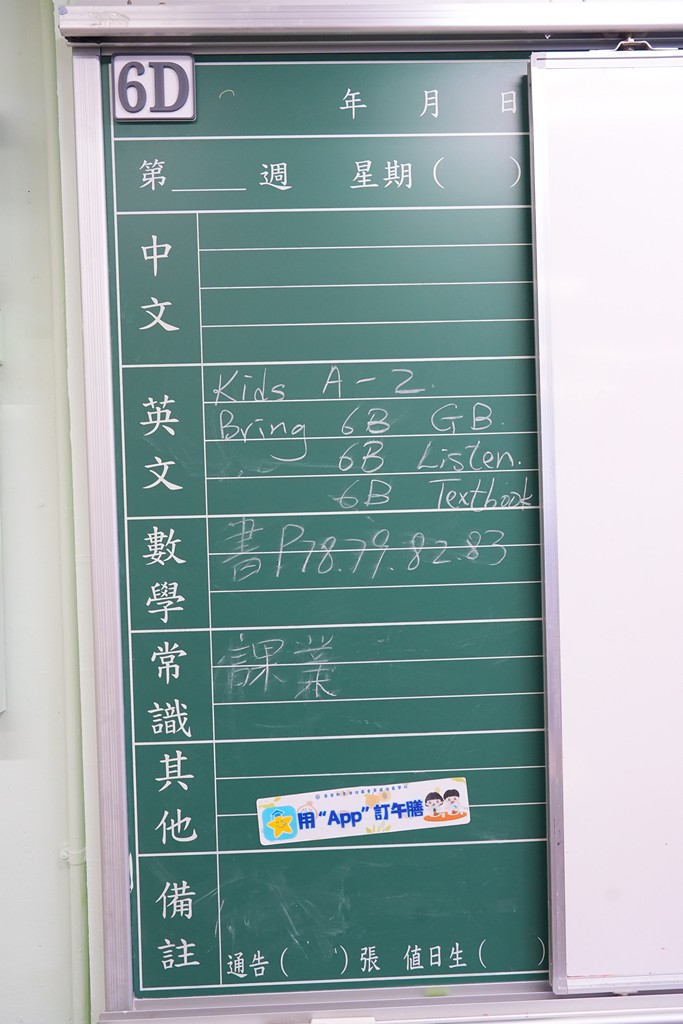 6D
年 月 日
第____週 星期（ ）
中文
英文
Kids A-2.
Bring 6B GB.
6B Listen.
6B Textbook
數學
書P78.79.82.83
常識
課業
其他
用“App”訂午膳
備註
通告（ ）張 值日生（ ）